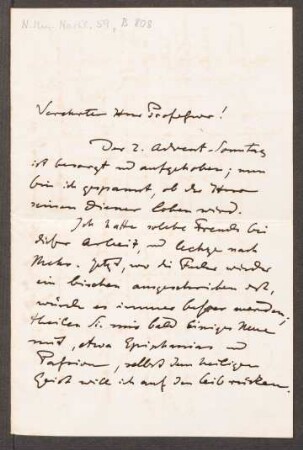 Verehrter Herr Professor!
Der 2. Advent-Sonntag
ist besorgt und aufgehoben; nun
bin ich gespannt, ob der Herr
seinen Diener loben wird.
Ich hatte solche Freude bei
dieser Arbeit, und lechze nach
Mehr. Jetzt, wo die Feder wieder
ein bischen ausgeschrieben ist,
würde es immer besser werden;
theilen Sie mir bald Einiges Neue
mit, etwa Epiphanias und
Passion, selbst dem heiligen
Geist will ich auf den Leib rücken.